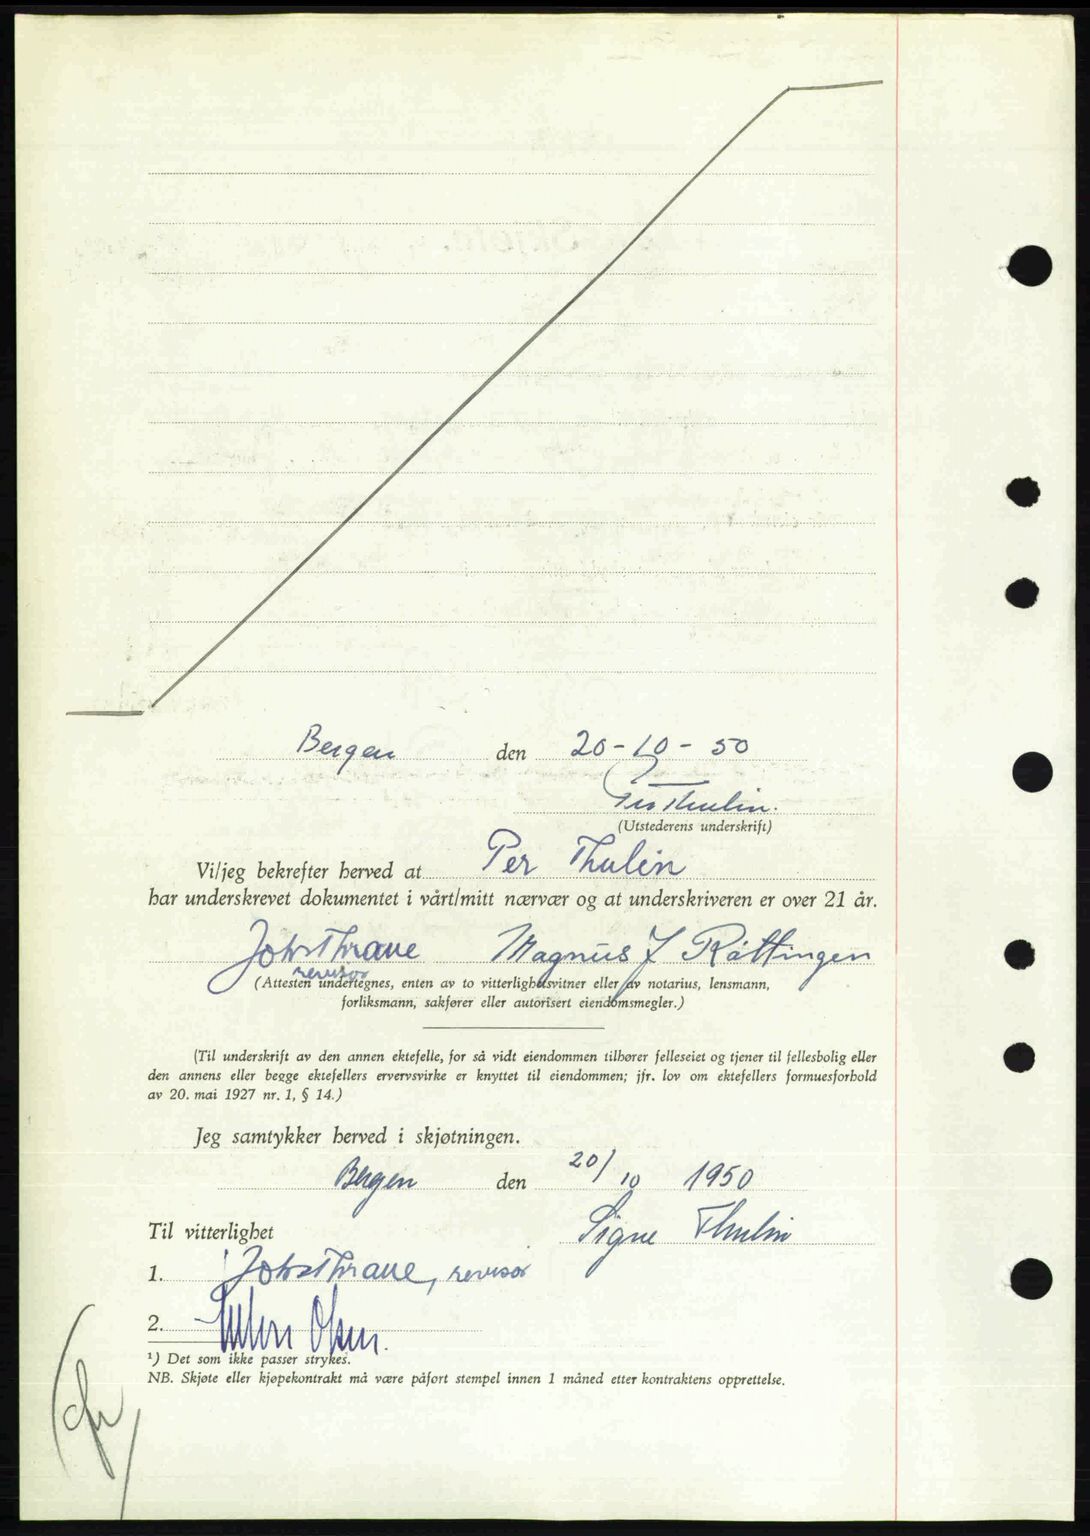 Bergen den 20-10-50
Per Thulin.
(Utstederens underskrift)
Vi/jeg bekrefter herved at Per Thulin
har underskrevet dokumentet i vårt/mitt nærvær og at underskriveren er over 21 år.
Johs Thrane Magnus J Råttingen
revisor
(Attesten undertegnes, enten av to vitterlighetsvitner eller av notarius, lensmann,
forliksmann, sakfører eller autorisert eiendomsmegler.)
(Til underskrift av den annen ektefelle, for så vidt eiendommen tilhører felleseiet og tjener til fellesbolig eller
den annens eller begge ektefellers ervervsvirke er knyttet til eiendommen; jfr. lov om ektefellers formuesforhold
av 20. mai 1927 nr. 1, § 14.)
Jeg samtykker herved i skjøtningen.
Bergen den 20/10 1950
Til vitterlighet Signe Thulin
1. Johs Thrane, revisor
2. Olsen.
¹) Det som ikke passer strykes.
NB. Skjøte eller kjøpekontrakt må være påført stempel innen 1 måned etter kontraktens opprettelse.